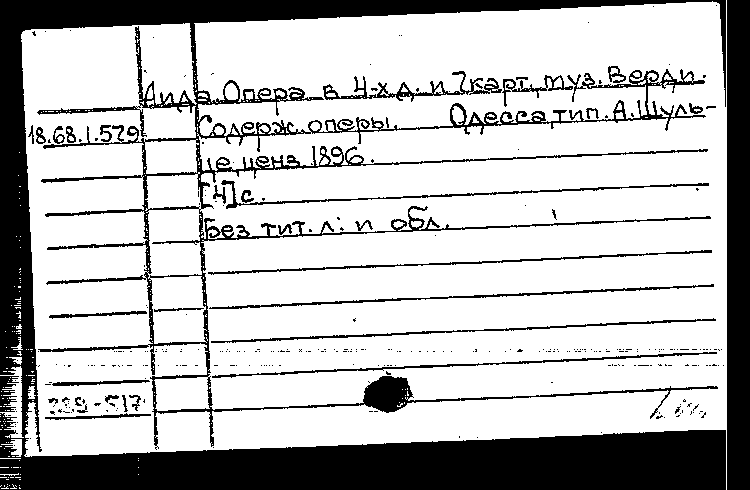 Аида. Опера в 4-х д. и 7 карт., муз. Верди.
18.68.1.579 Содерж. оперы. Одесса, тип. А. Шуль-
це, ценз. 1896.
[4] с.
Без тит. л. и обл.
339-517